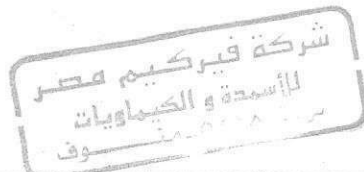 شركة فيركيم مصر
للأسمدة و الكيماويات
منوف